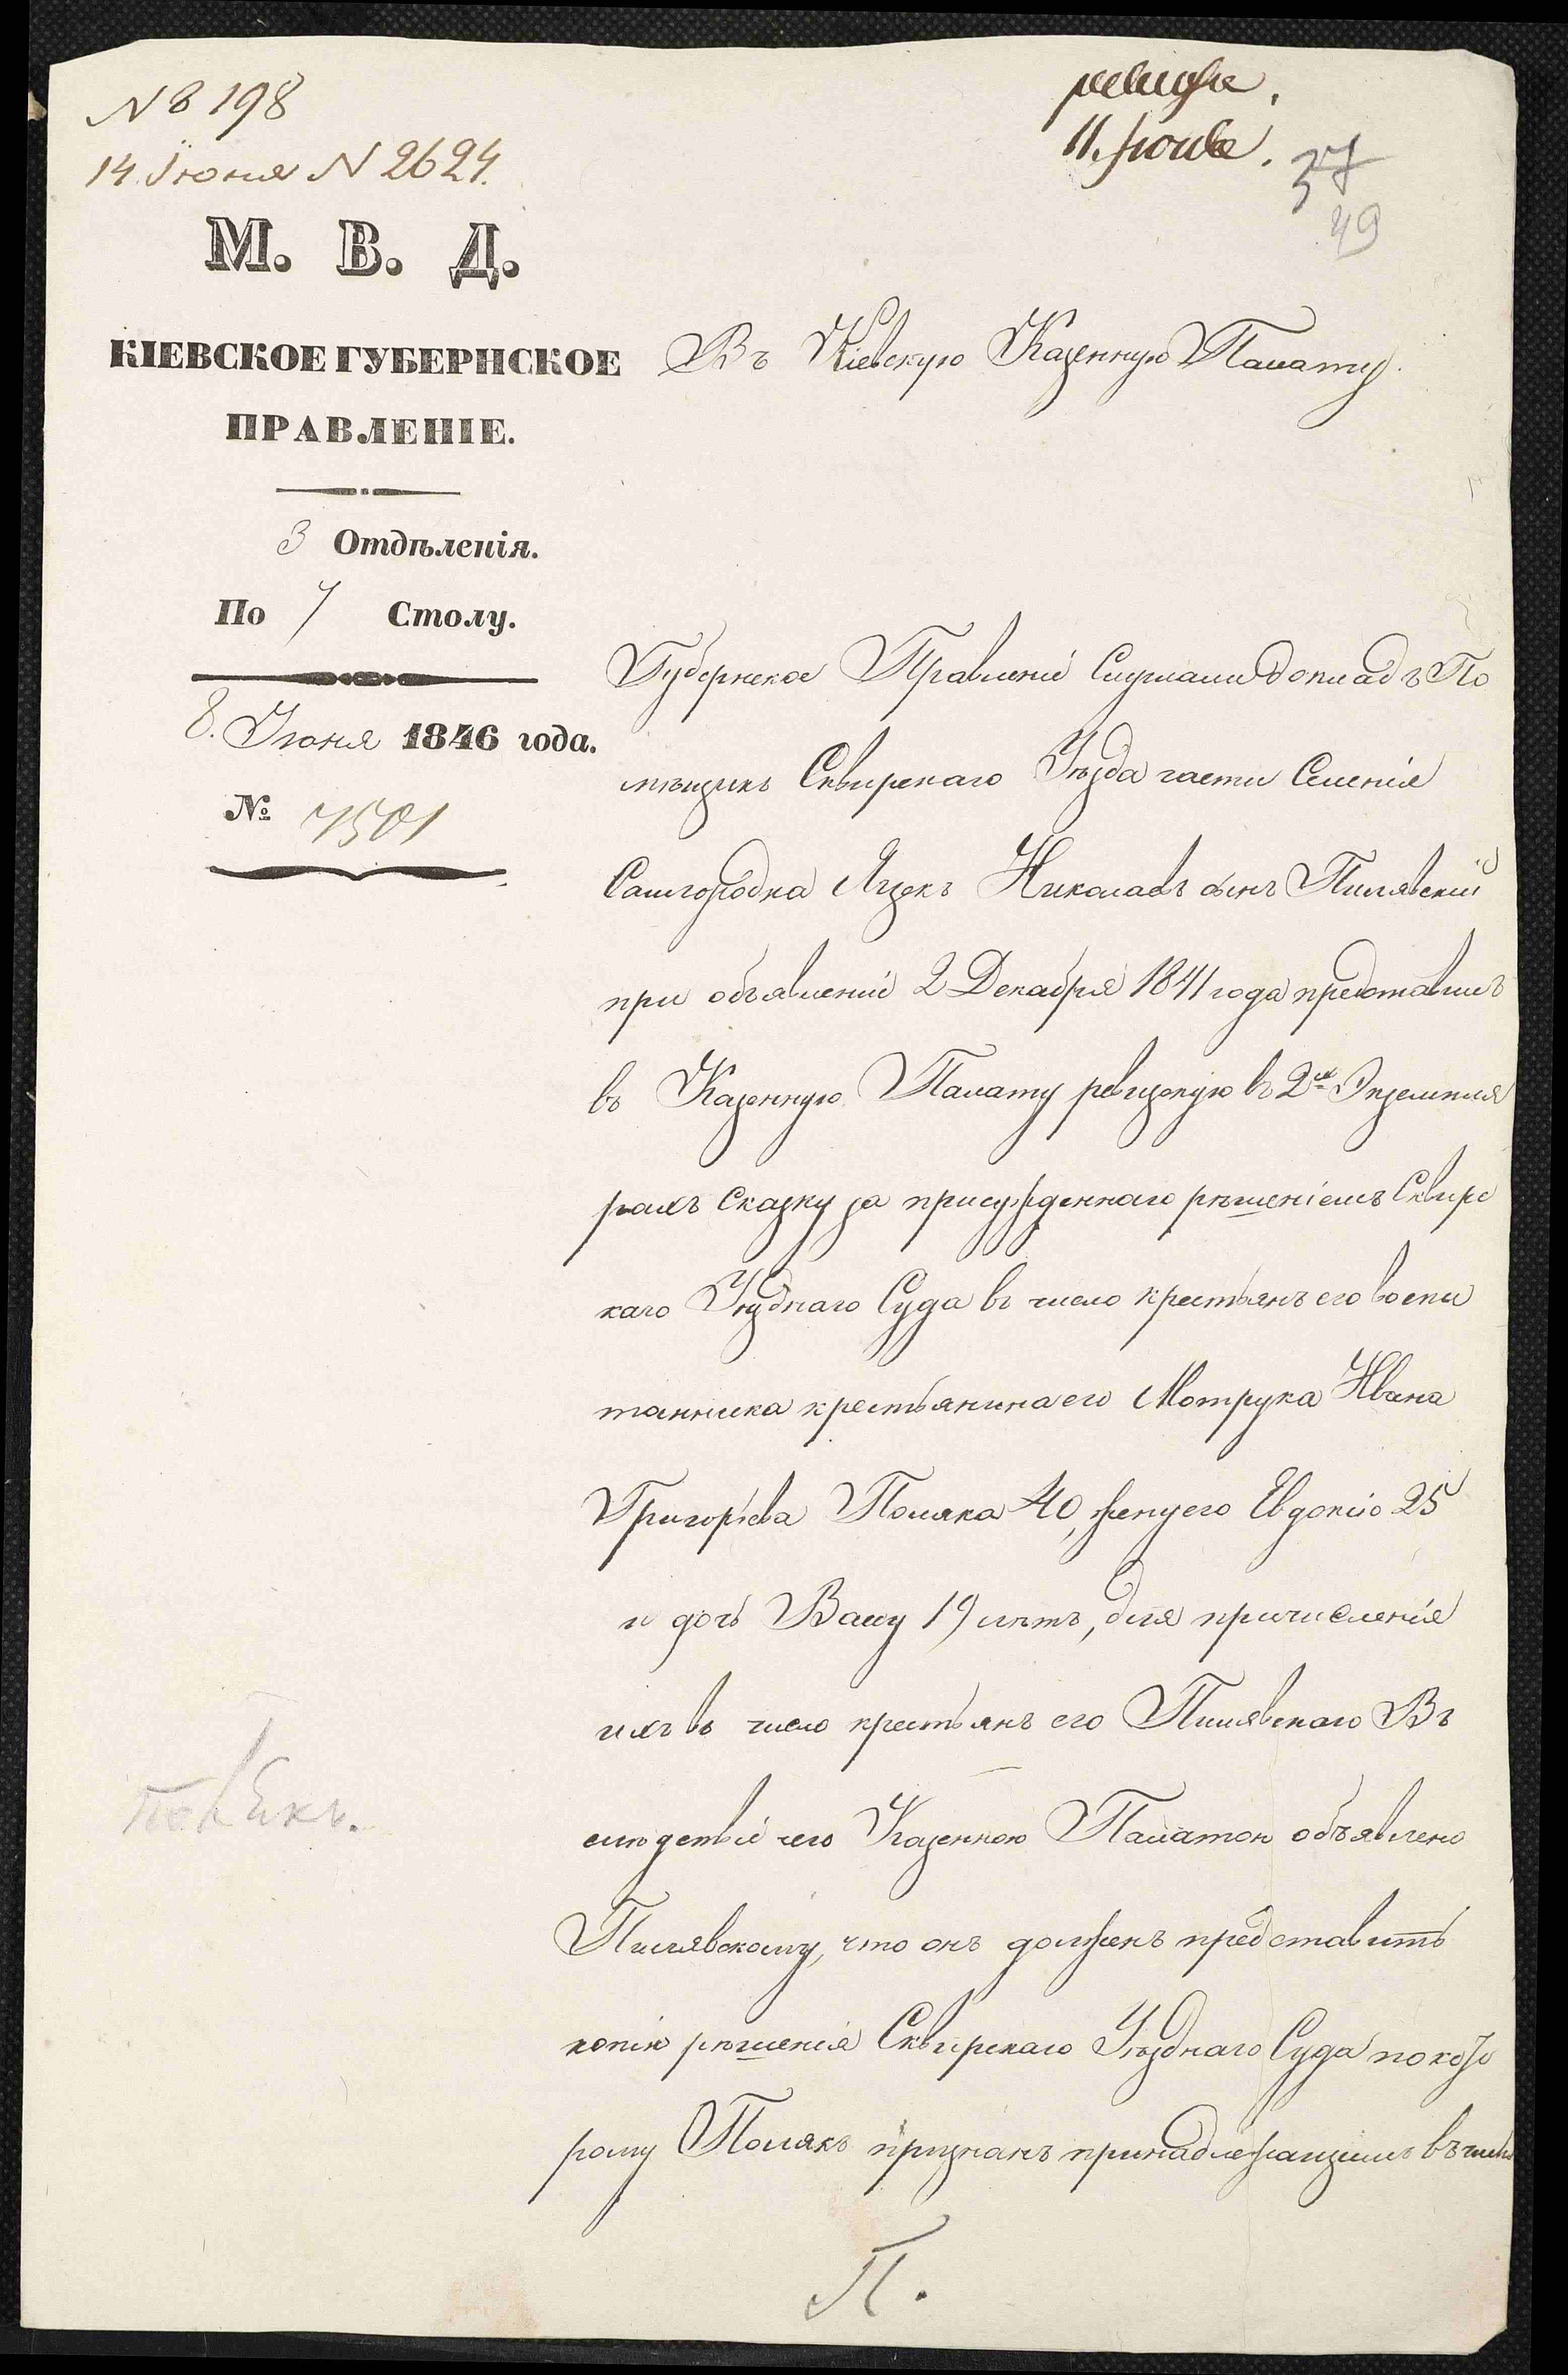 N 8 198
14. Іюня N 2624.
11. Іюня.
37
49
М. В. Д.
КІЕВСКОЕ ГУБЕРНСКОЕ
ПРАВЛЕНІЕ.
3 Отдѣленія.
По 7 Столу.
8. Іюня 1846 года.
№ 7501
Въ Кіевскую Казенную Палату.
Губернское Правленіе Слушали докладъ По
мѣщикъ Сквирскаго Уѣзда части Селенія
Самгородка Яцекъ Николаевъ сынъ Пилявскій
при объявленіи 2 Декабря 1841 года представилъ
въ Казенную Палату ревизскую въ 2хъ Экземпля
рахъ Сказку за присужденнаго рѣшеніемъ Сквирс
каго Уѣзднаго Суда въ число крестьянъ его воспи
танника крестьянина его Мотрука Ивана
Григорьева Поляка 40, жену его Евдокію 25
и дочь Васу 19 лѣтъ, для причисленія
ихъ въ число крестьянъ его Пилявскаго Въ
слѣдствіе чего Казенною Палатою объявлено
Пилявскому, что онъ долженъ представить
копію рѣшенія Сквирскаго Уѣзднаго Суда по кото
рому Полякъ признанъ принадлежащимъ въ число
П.